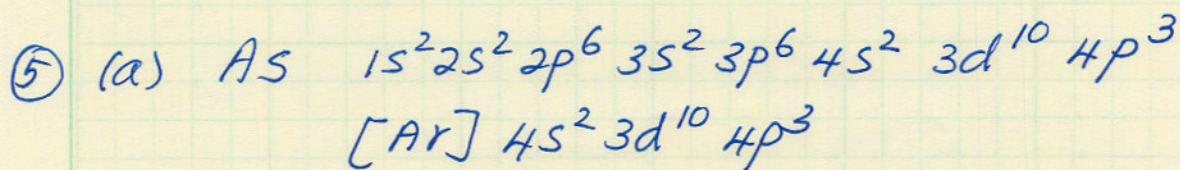 ⑤ (a) As 1s² 2s² 2p⁶ 3s² 3p⁶ 4s² 3d¹⁰ 4p³
[Ar] 4s² 3d¹⁰ 4p³